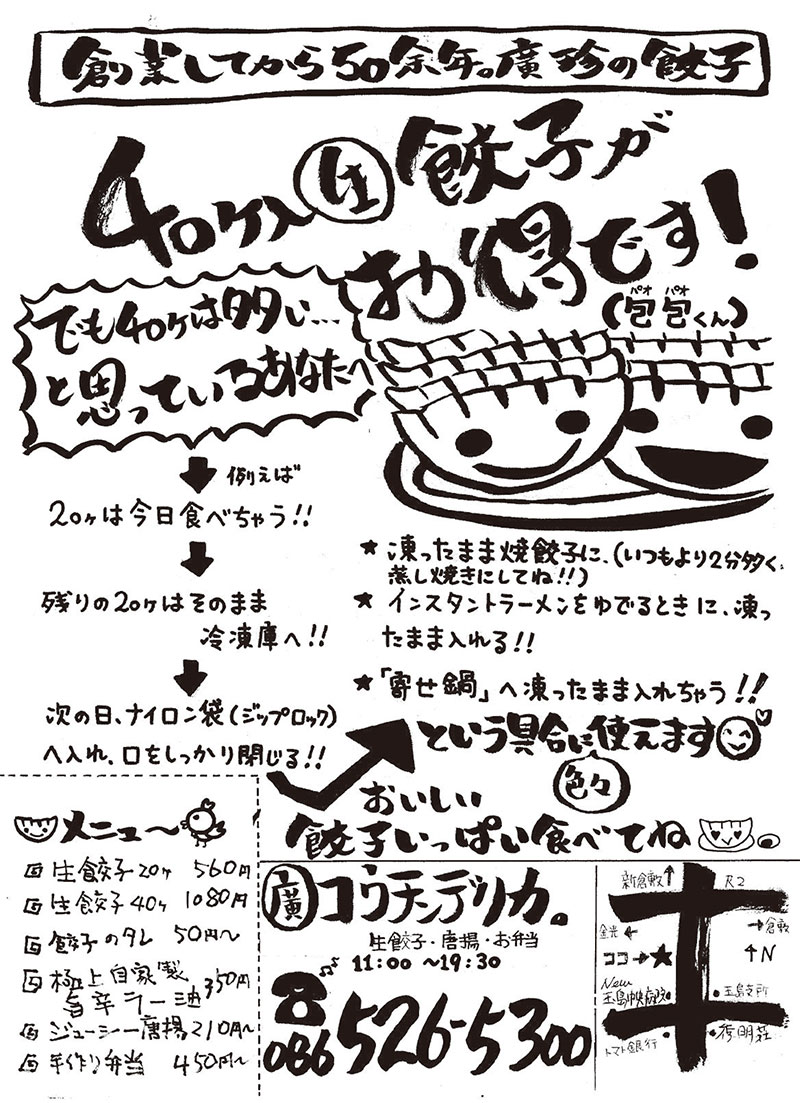 創業してから50余年。廣珍の餃子
40ケ入生餃子が
お得です！
(包包くん)
パオ パオ
でも40ケは多いし…
と思っているあなたへ
例えば
20ヶは今日食べちゃう!!
残りの20ヶはそのまま
冷凍庫へ!!
次の日、ナイロン袋(ジップロック)
へ入れ、口をしっかり閉じる!!
★ 凍ったまま焼餃子に、(いつもより2分多く、
蒸し焼きにしてね!!)
★ インスタントラーメンをゆでるときに、凍っ
たまま入れる!!
★「寄せ鍋」へ凍ったまま入れちゃう!!
という具合に使えます
色々
おいしい
餃子いっぱい食べてね
メニュ〜
生餃子20ヶ 560円
生餃子40ヶ 1080円
餃子のタレ 50円〜
極上自家製
旨辛ラー油 350円
ジューシー唐揚 210円〜
手作り弁当 450円〜
廣 コウチンデリカ。
生餃子・唐揚・お弁当
11:00 〜19:30
086 526-5300
新倉敷↑ R2
金光← →倉敷
ココ→★ ↑N
New
玉島中央病院 玉島支所
トマト銀行